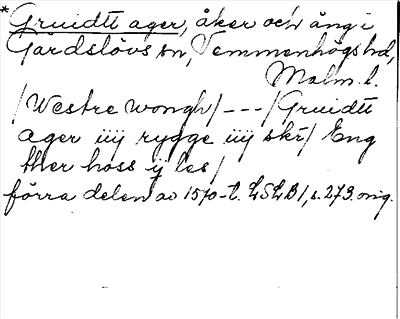 *Gruidtt ager, åker och äng i
Gärdslövs sn, Vemmenhögs hd,
Malm. l.
/Westre wongh/ --- /Gruidtt
ager iiij rygge iiij skr/ Eng
ther hoss ij les/
förra delen av 1570-t. LSLB 1, s. 273. orig.